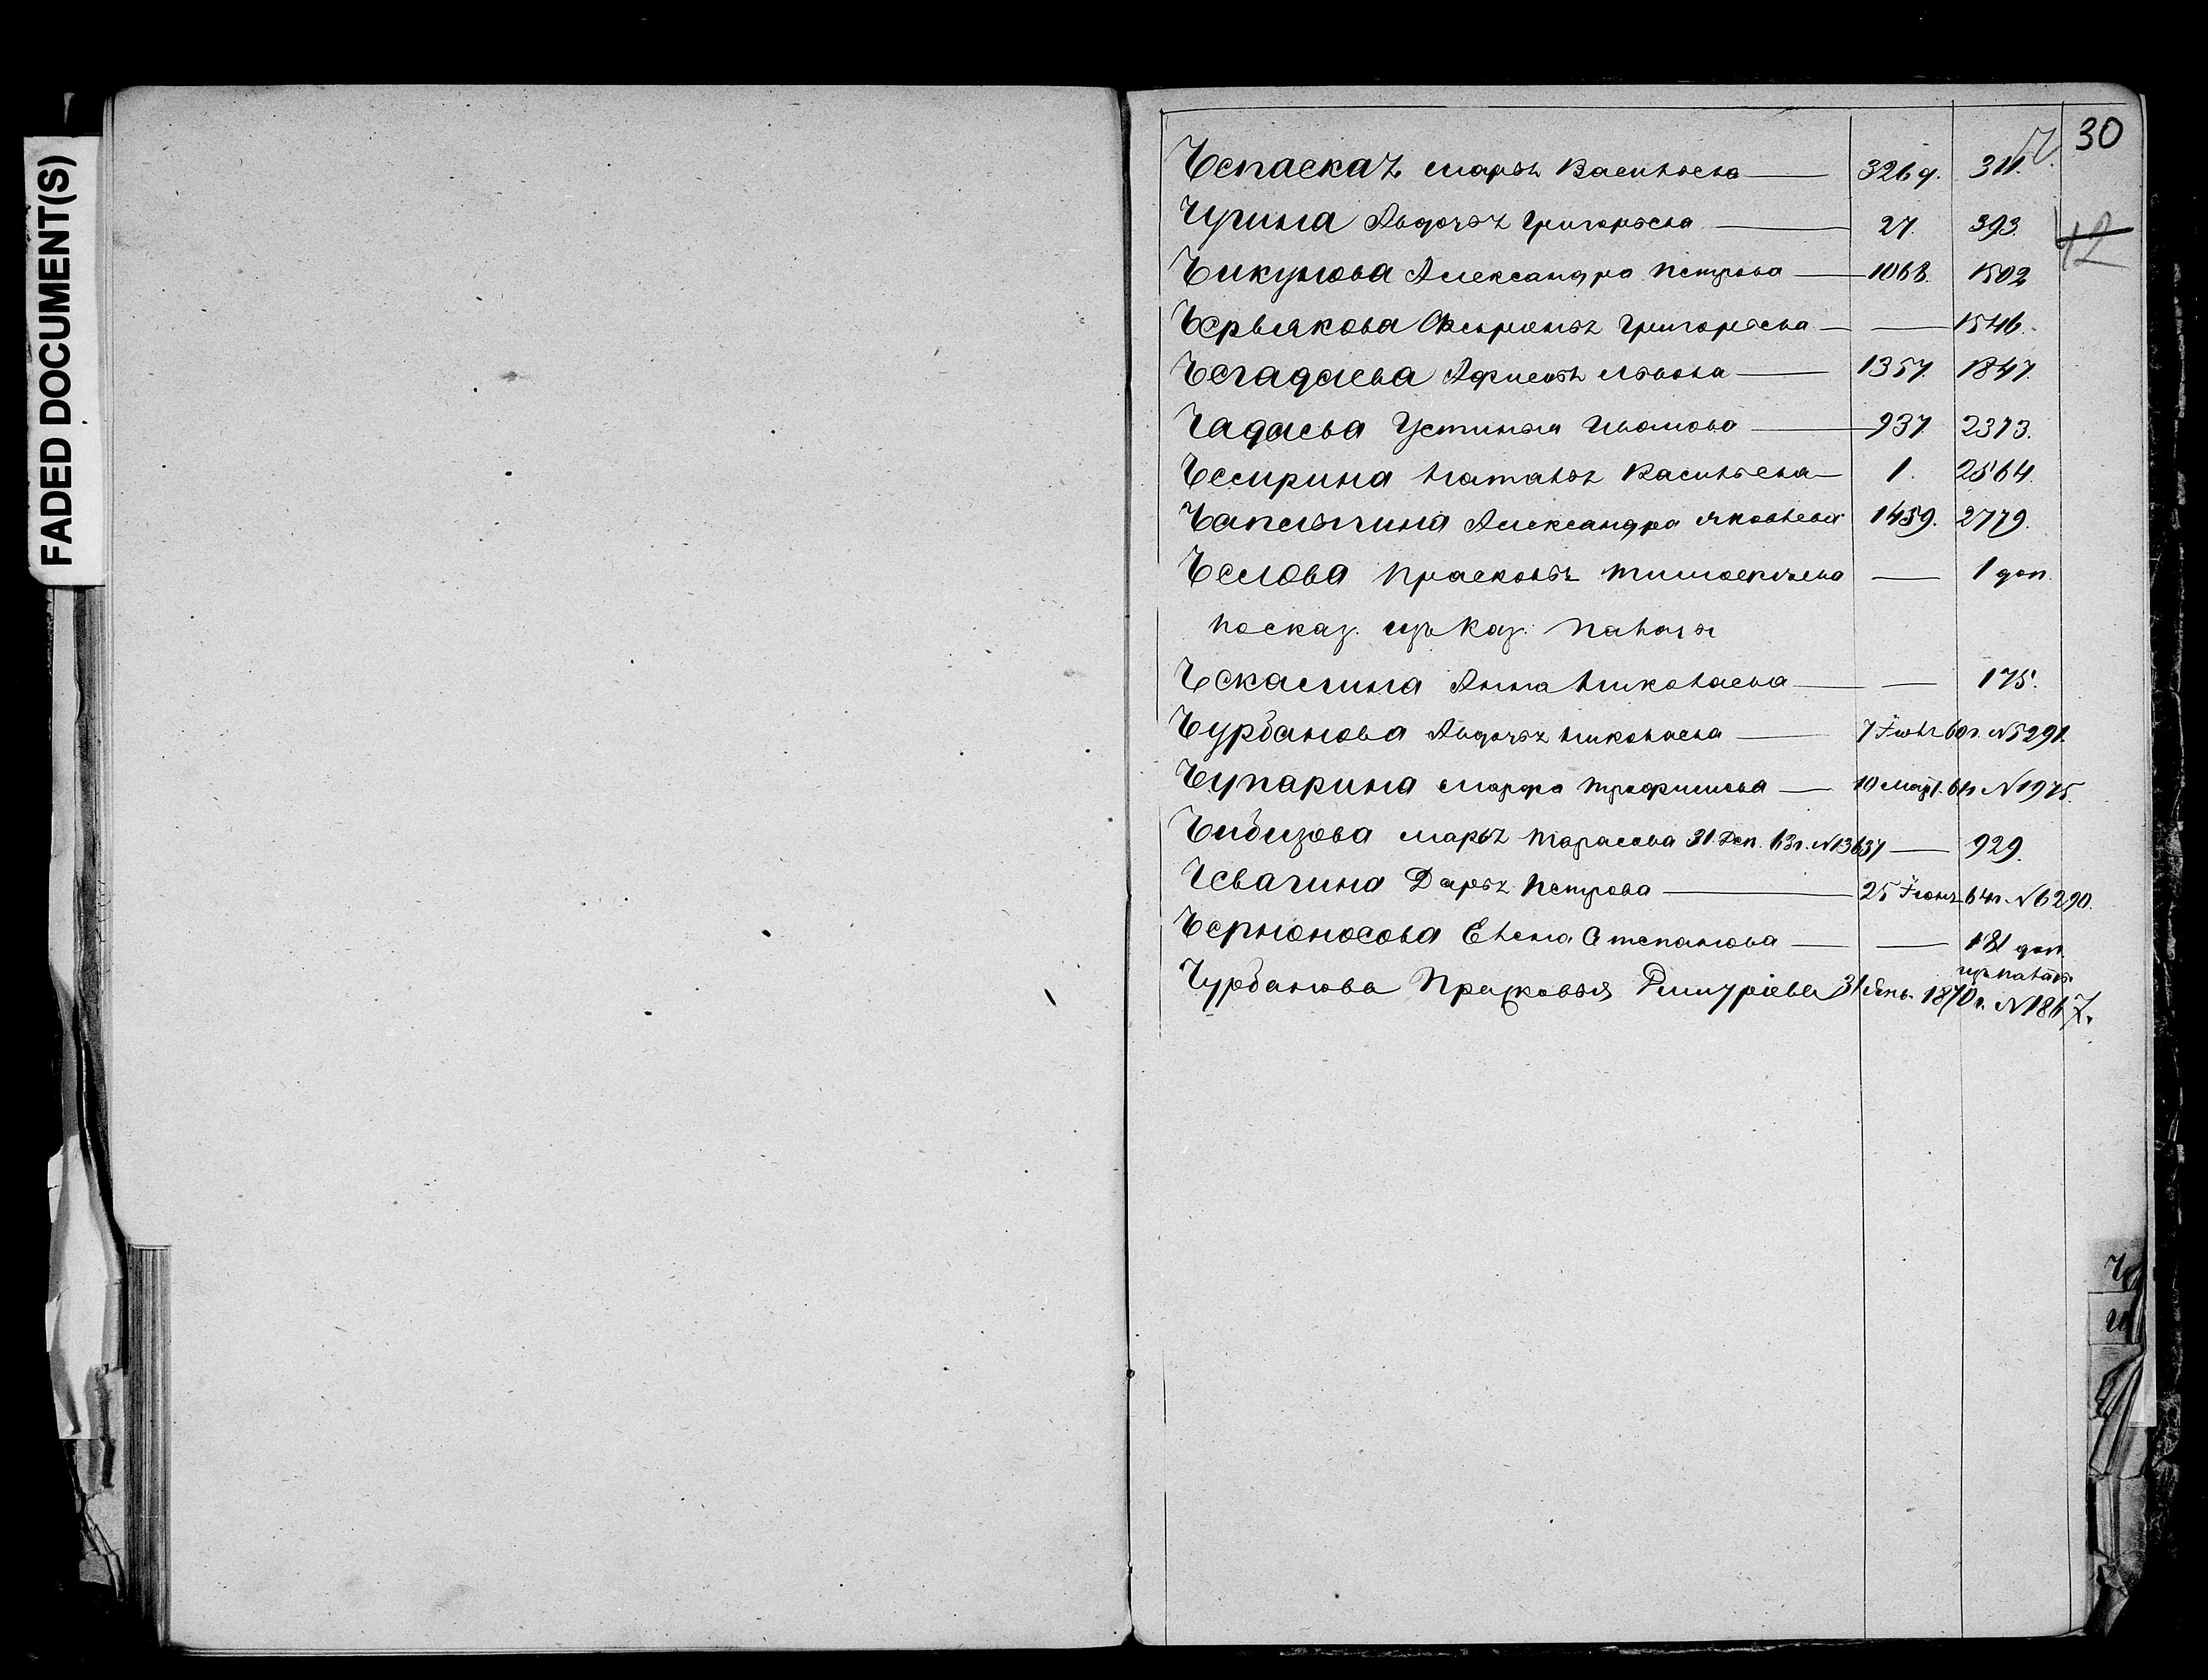 FADED DOCUMENT(S)
30
42
Чепаская Марья Васильева — 326 д. 311.
Чугина Авдотья Григорьева — 27. 393.
Чикунова Александра Петрова — 1068. 1502
Червякова Григорьева — — 1546.
Чегадаева Львова — 1357. 1847.
Чадаева Устинья Иванова — 937 2373.
Чемрина Наталья Васильева — 1. 2564.
Чаплыгина Александра Яковлева 1459. 2779.
Чеглова Прасковья — 1 доп.
Показ. изъ Каз. Палаты
Чекалина Анна Николаева — — 175.
Чурбанова Авдотья Николаева — 7 Іюля 60 г. № 5291.
Чупарина Марфа Трофимова — 10 Март. 61 г № 1975.
Чибизова Марья Тарасова 31 Дек. 63 г. № 13637 — 929.
Чевагина Дарья Петрова — 25 Іюня 64 г. № 6290.
Черноносова Елена Степанова — — 181 доп.
изъ Палаты
Чурбанова Прасковья 31 Янв. 1870 г. № 1867.